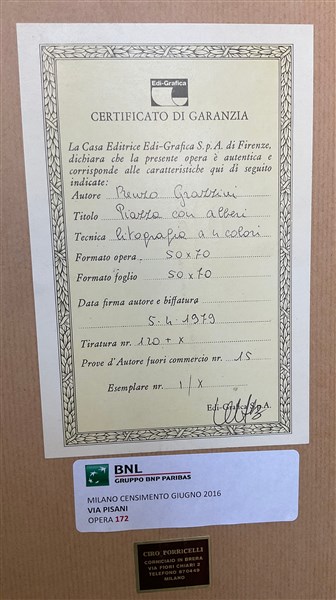 Edi-Grafica
CERTIFICATO DI GARANZIA
La Casa Editrice Edi-Grafica S.p.A. di Firenze,
dichiara che la presente opera è autentica e
corrisponde alle caratteristiche qui di seguito
indicate:
Autore Renzo Grazzini
Titolo Piazza con alberi
Tecnica litografia a 4 colori
Formato opera 50x70
Formato foglio 50x70
Data firma autore e biffatura
5.4.1979
Tiratura nr. 120 + X
Prove d'Autore fuori commercio nr. 15
Esemplare nr. 1/X
Edi-Grafica S.p.A.
BNL
GRUPPO BNP PARIBAS
MILANO CENSIMENTO GIUGNO 2016
VIA PISANI
OPERA 172
CIRO PORRICELLI
CORNICIAIO IN BRERA
VIA FIORI CHIARI 2
TELEFONO 870449
MILANO